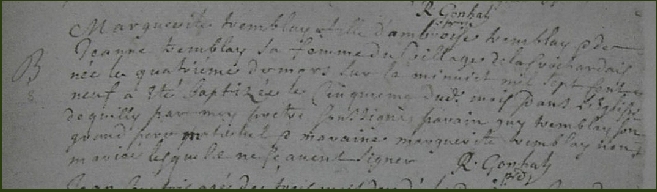 R. Gonhat
Marguerite tremblay fille d'ambroise tremblay & de
Jeanne tremblay sa femme du village de la
née le quatriéme de mars sur la minuit mil sept cent
B
neuf a été baptizée le cinquieme dud. mois dans l'Eglise
de quilly par moy pretre soussigné parain guy tremblay son
grand pere maternel & maraine marguerite tremblay non
mariée lesquels ne sçavent signer R. Gonhat